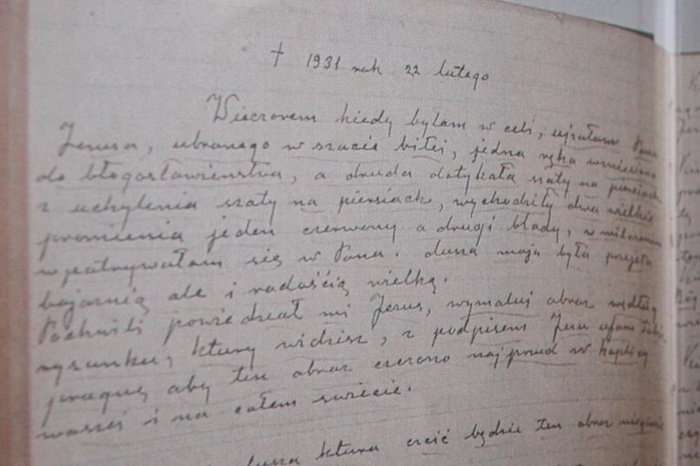 † 1931 rok 22 lutego
Wieczorem kiedy byłam w celi, ujrzałam Pana
Jezusa, ubranego w szacie białej, jedna ręka wzniesiona
do błogosławieństwa, a druga dotykała szaty na piersiach
z uchylenia szaty na piersiach, wychodziły dwa wielkie
promienia jeden czerwony a drugi blady, w milczeniu
wpatrywałam się w Pana. dusza moja była przejęta
bojaźnią ale i radością wielką.
Po chwili powiedział mi Jezus, wymaluj obraz według
rysunku, który widzisz, z podpisem Jezu ufam Tobie
pragnę aby ten obraz czczono najprzód w kaplicy
waszej i na całem świecie.
dusza która czcić będzie ten obraz nie zginie